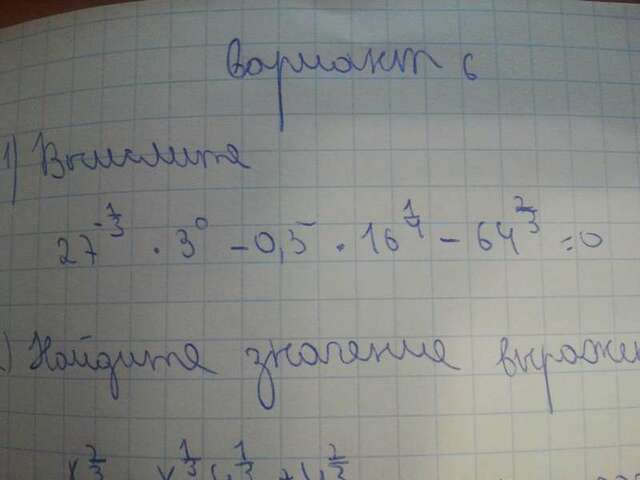 Вариант 6
1) Вычислите
27^{-\frac{1}{3}} · 3^0 - 0,5 · 16^{\frac{1}{4}} - 64^{\frac{2}{3}} = 0
) Найдите значение выраже
x^{\frac{2}{3}}